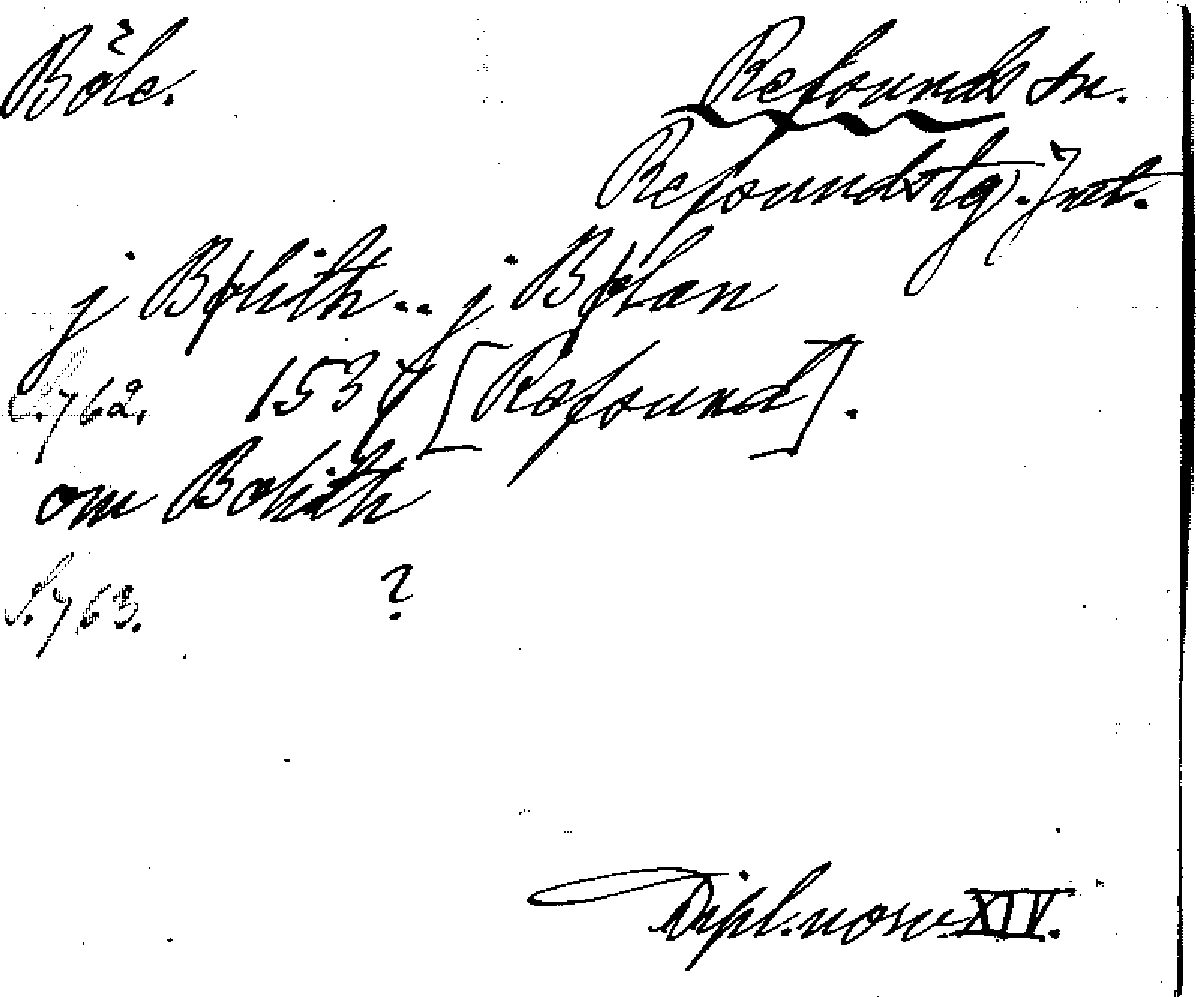 Böle.
Refsunds sn.
Refsunds tg. Jmtl.
j Bølith.. j Bølan
S. 762. 1537 [Refsund].
om Bolith
S. 763. ?
Dipl. norv. XIV.